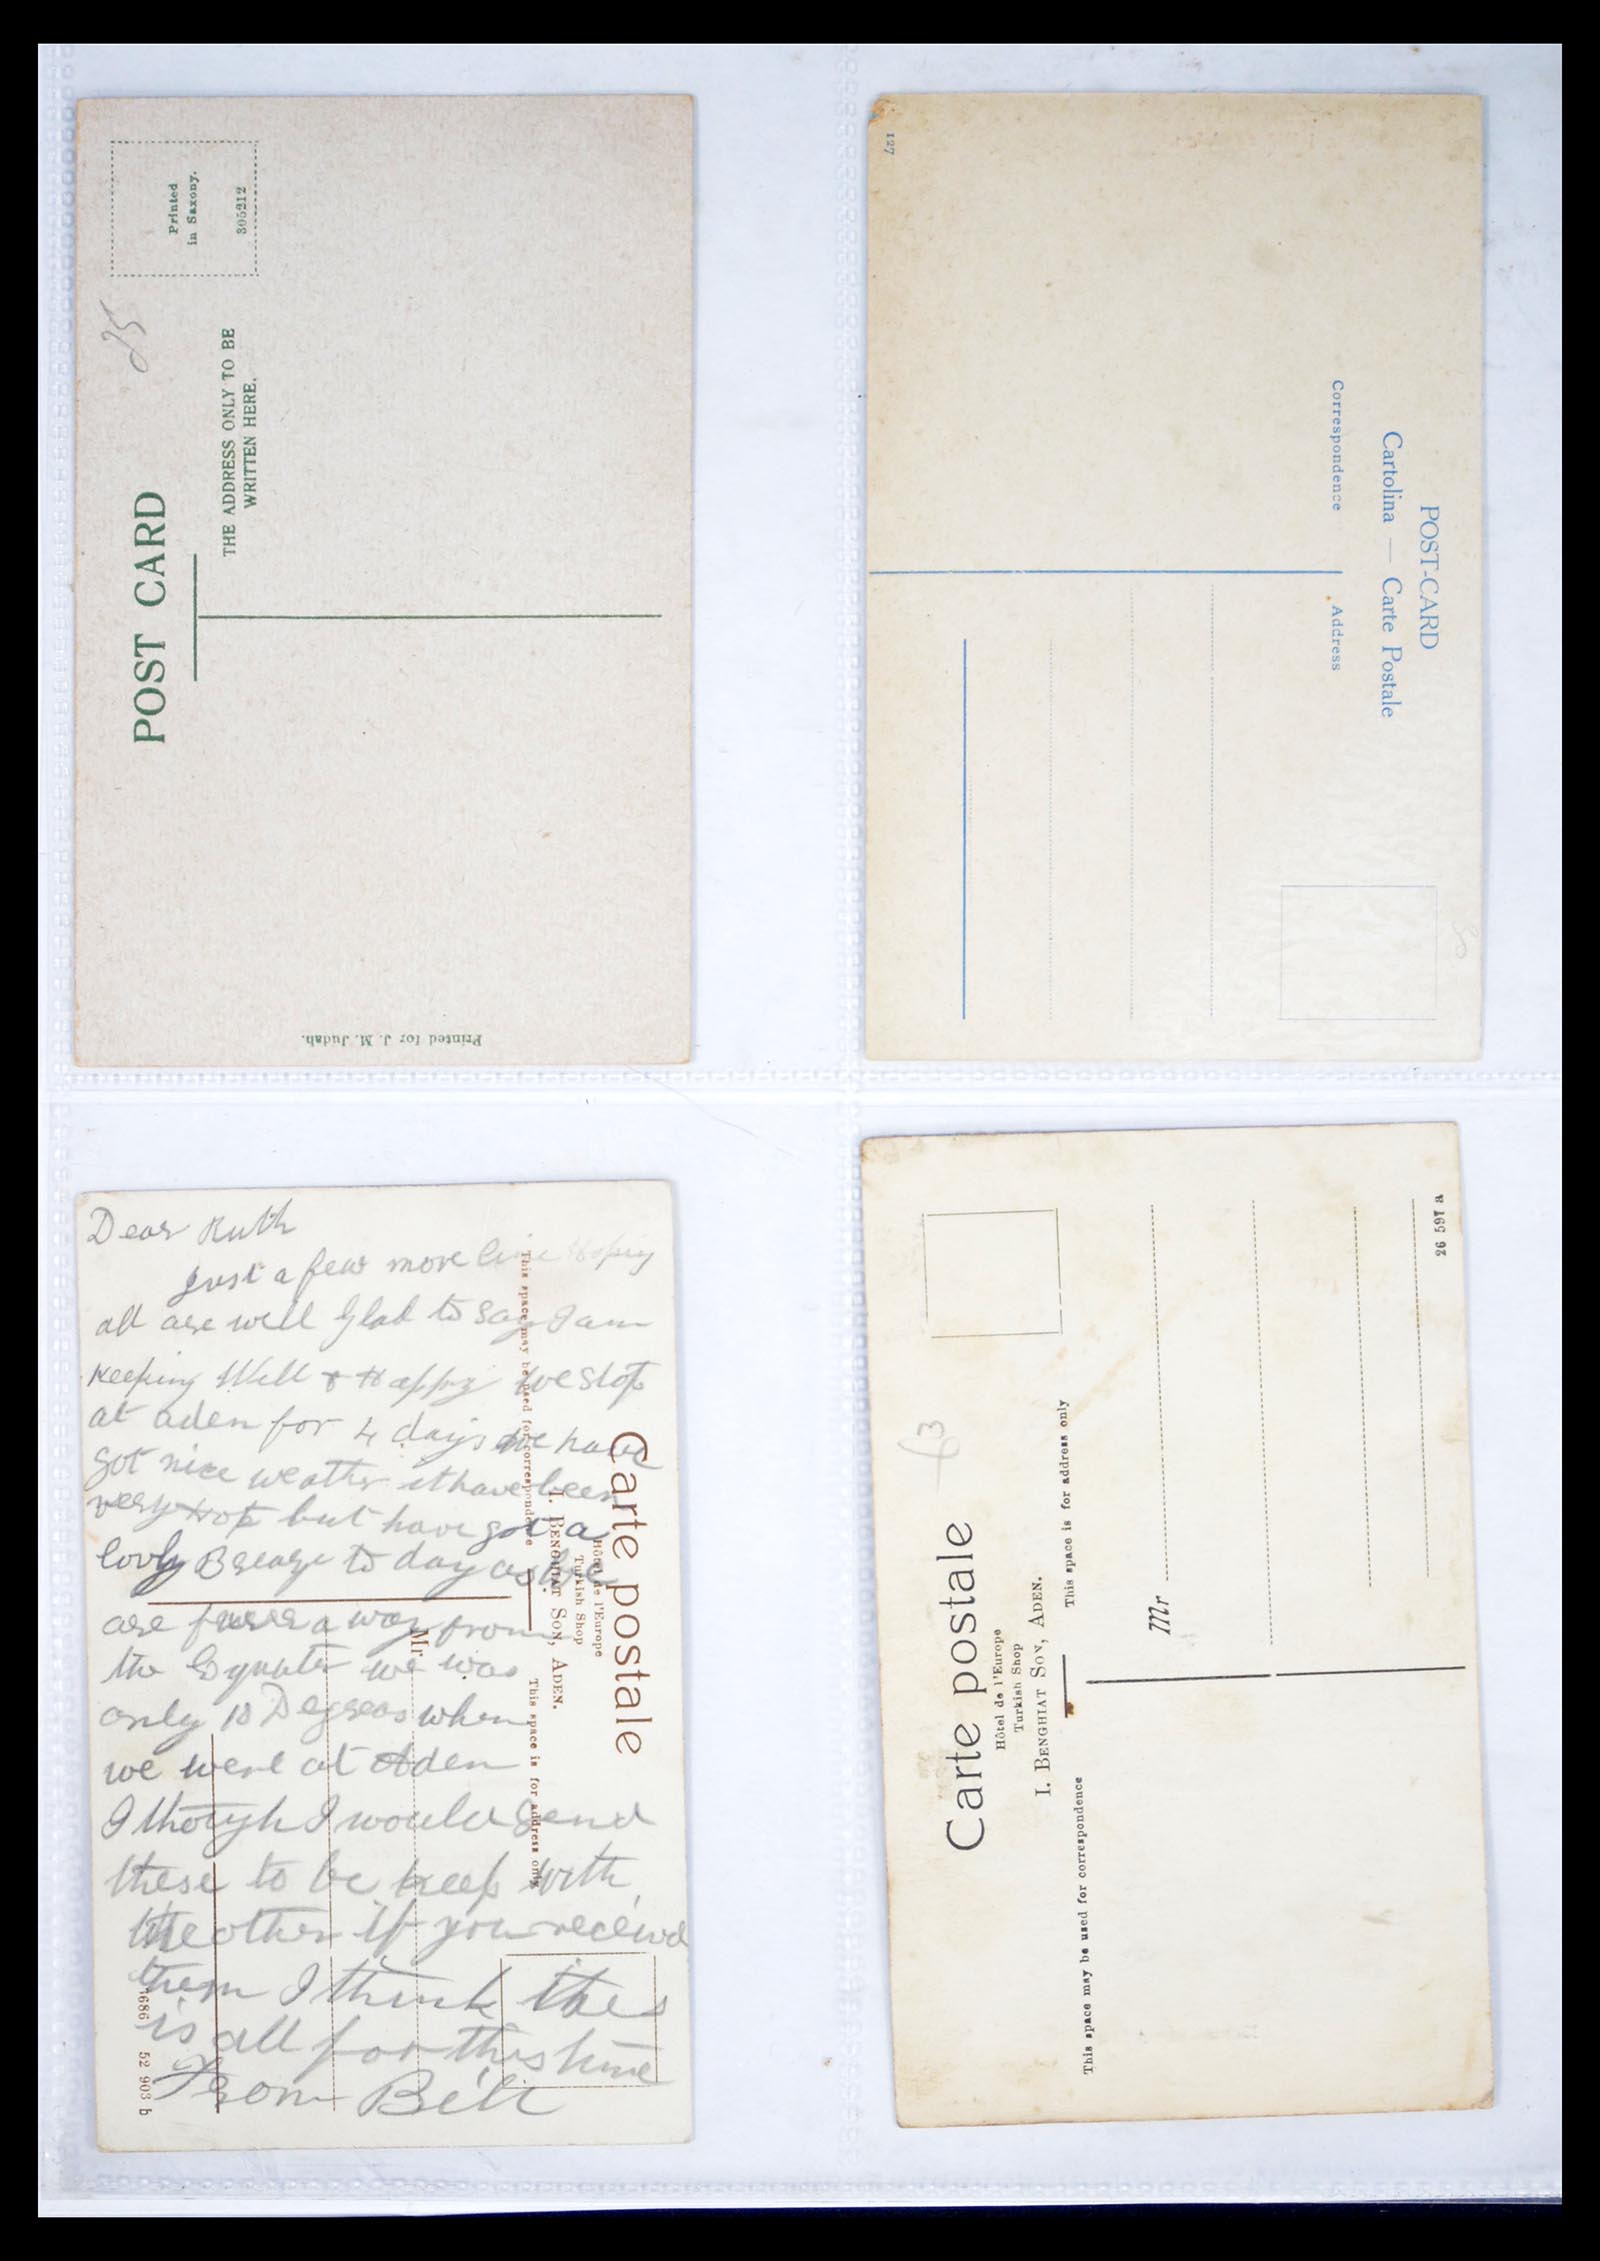 Printed
in Saxony.
305212
25
POST CARD
THE ADDRESS ONLY TO BE
WRITTEN HERE.
Printed for J. M. Judah.
127
POST-CARD
Cartolina — Carte Postale
Correspondence
Address
8
Dear Ruth
Just a few more line Hoping
all are well Glad to say I am
Keeping Well & Happy we stop
at aden for 4 days we have
got nice weather it have been
very Hot but have got a
lovly Breaze to day as we
are furer a way from
the Equater we was
only 10 Degreas when
we were at Aden
I though I would send
these to be keep with
the other if you receivd
them I think this
is all for this time
From Bill
Carte postale
Hôtel de l'Europe
Turkish Shop
I. BENGHIAT SON, ADEN.
This space may be used for correspondence
This space is for address only
Mr
1686 52 903 b
£3
Carte postale
Hôtel de l'Europe
Turkish Shop
I. BENGHIAT SON, ADEN.
This space may be used for correspondence
This space is for address only
Mr
26 597 a